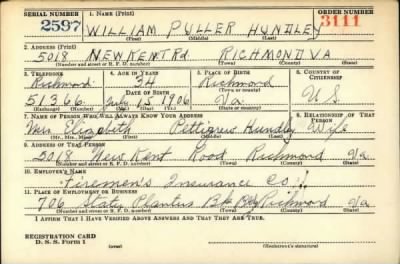 SERIAL NUMBER 1. NAME (Print) ORDER NUMBER
2597 WILLIAM PULLER HUNDLEY 3111
(First) (Middle) (Last)
2. ADDRESS (Print)
5018 NEW KENT Rd RICHMOND VA
(Number and street or R. F. D. number) (Town) (County) (State)
3. TELEPHONE 4. AGE IN YEARS 5. PLACE OF BIRTH 6. COUNTRY OF CITIZENSHIP
Richmond 34 Richmond
DATE OF BIRTH (Town or county)
51366 July 15 1906 Va U S
(Exchange) (Number) (Mo.) (Day) (Yr.) (State or country)
7. NAME OF PERSON WHO WILL ALWAYS KNOW YOUR ADDRESS 8. RELATIONSHIP OF THAT PERSON
Mrs. Elizabeth Pettigrew Hundley Wife
(Mr., Mrs., Miss) (First) (Middle) (Last)
9. ADDRESS OF THAT PERSON
5018 New Kent Road Richmond Va
(Number and street or R. F. D. number) (Town) (County) (State)
10. EMPLOYER'S NAME
Firemen's Insurance Co.
11. PLACE OF EMPLOYMENT OR BUSINESS
706 State Planters Bk Bldg Richmond Va
(Number and street or R. F. D. number) (Town) (County) (State)
I AFFIRM THAT I HAVE VERIFIED ABOVE ANSWERS AND THAT THEY ARE TRUE.
REGISTRATION CARD
D. S. S. Form 1 (over) (Registrant's signature)